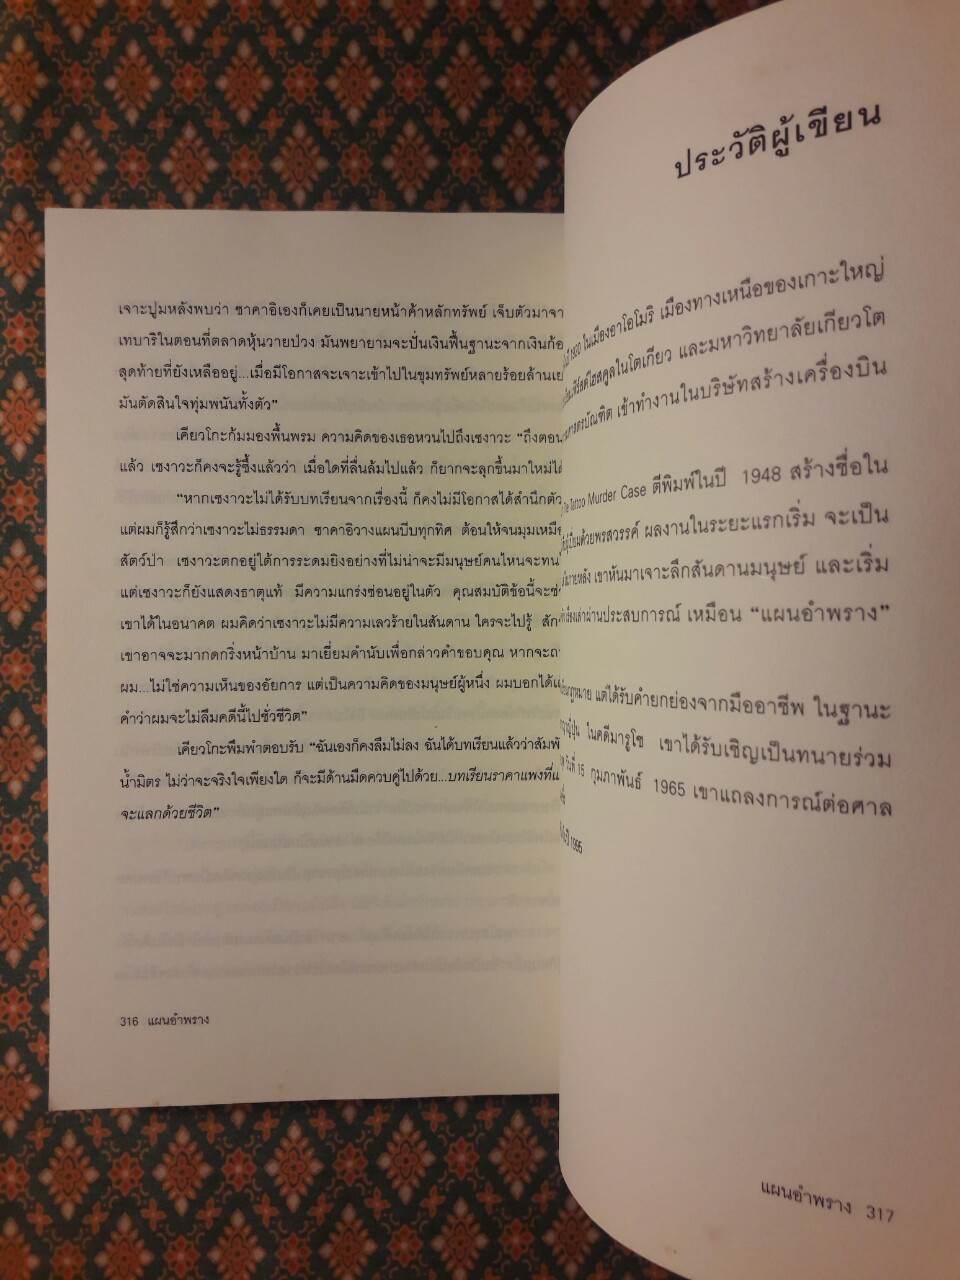 เจาะปูมหลังพบว่า ซาคาอิเองก็เคยเป็นนายหน้าค้าหลักทรัพย์ เจ็บตัวมาจา
เทบาริในตอนที่ตลาดหุ้นวายป่วง มันพยายามจะปั่นเงินฟื้นฐานะจากเงินก้อ
สุดท้ายที่ยังเหลืออยู่...เมื่อมีโอกาสจะเจาะเข้าไปในขุมทรัพย์หลายร้อยล้านเย
มันตัดสินใจทุ่มพนันทั้งตัว”
เคียวโกะก้มมองพื้นพรม ความคิดของเธอหวนไปถึงเซงาวะ “ถึงตอน
แล้ว เซงาวะก็คงจะรู้ซึ้งแล้วว่า เมื่อใดที่ลื่นล้มไปแล้ว ก็ยากจะลุกขึ้นมาใหม่ได้
“หากเซงาวะไม่ได้รับบทเรียนจากเรื่องนี้ ก็คงไม่มีโอกาสได้สำนึกตัว
แต่ผมก็รู้สึกว่าเซงาวะไม่ธรรมดา ซาคาอิวางแผนบีบทุกทิศ ต้อนให้จนมุมเหมือ
สัตว์ป่า เซงาวะตกอยู่ใต้การระดมยิงอย่างที่ไม่น่าจะมีมนุษย์คนไหนจะทน
แต่เซงาวะก็ยังแสดงธาตุแท้ มีความแกร่งซ่อนอยู่ในตัว คุณสมบัติข้อนี้จะช่
เขาได้ในอนาคต ผมคิดว่าเซงาวะไม่มีความเลวร้ายในสันดาน ใครจะไปรู้ สัก
เขาอาจจะมากดกริ่งหน้าบ้าน มาเยี่ยมคำนับเพื่อกล่าวคำขอบคุณ หากจะถ
ผม...ไม่ใช่ความเห็นของอัยการ แต่เป็นความคิดของมนุษย์ผู้หนึ่ง ผมบอกได้แ
คำว่าผมจะไม่ลืมคดีนี้ไปชั่วชีวิต”
เคียวโกะพึมพำตอบรับ “ฉันเองก็คงลืมไม่ลง ฉันได้บทเรียนแล้วว่าสัมพั
น้ำมิตร ไม่ว่าจะจริงใจเพียงใด ก็จะมีด้านมืดควบคู่ไปด้วย...บทเรียนราคาแพงที่แ
จะแลกด้วยชีวิต”
316 แผนอำพราง
ประวัติผู้เขียน
1920 ในเมืองอาโอโมริ เมืองทางเหนือของเกาะใหญ่
เฟิร์สต์ไฮสคูลในโตเกียว และมหาวิทยาลัยเกียวโต
เข้าทำงานในบริษัทสร้างเครื่องบิน
Tattoo Murder Case ตีพิมพ์ในปี 1948 สร้างชื่อใน
เปี่ยมด้วยพรสวรรค์ ผลงานในระยะแรกเริ่ม จะเป็น
มายหลัง เขาหันมาเจาะลึกสันดานมนุษย์ และเริ่ม
เล่าผ่านประสบการณ์ เหมือน “แผนอำพราง”
กฎหมาย แต่ได้รับคำยกย่องจากมืออาชีพ ในฐานะ
ญี่ปุ่น ในคดีมารูโซ เขาได้รับเชิญเป็นทนายร่วม
วันที่ 15 กุมภาพันธ์ 1965 เขาแถลงการณ์ต่อศาล
ปี 1995
แผนอำพราง 317